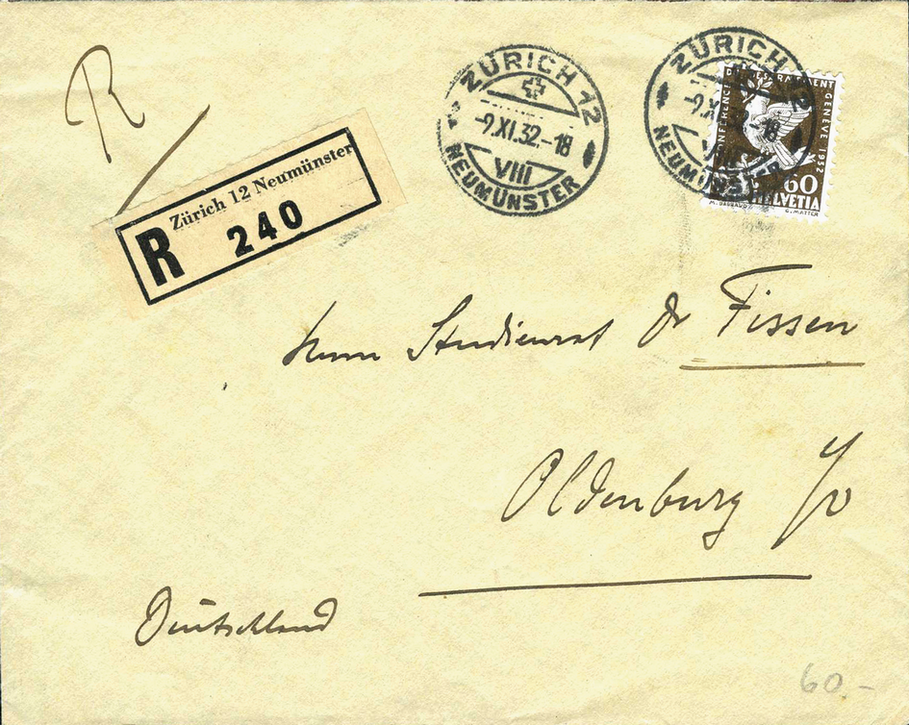 R
Zürich 12 Neumünster
R 240
ZÜRICH 12
-9.XI.32.-18
VIII
NEUMÜNSTER
ZÜRICH 12
-9.XI.32.-18
VIII
NEUMÜNSTER
CONFERENCE DU DESARMEMENT GENEVE 1932
60
HELVETIA
Herrn Studienrat Dr Fissen
Oldenburg i/o
Deutschland
60.-